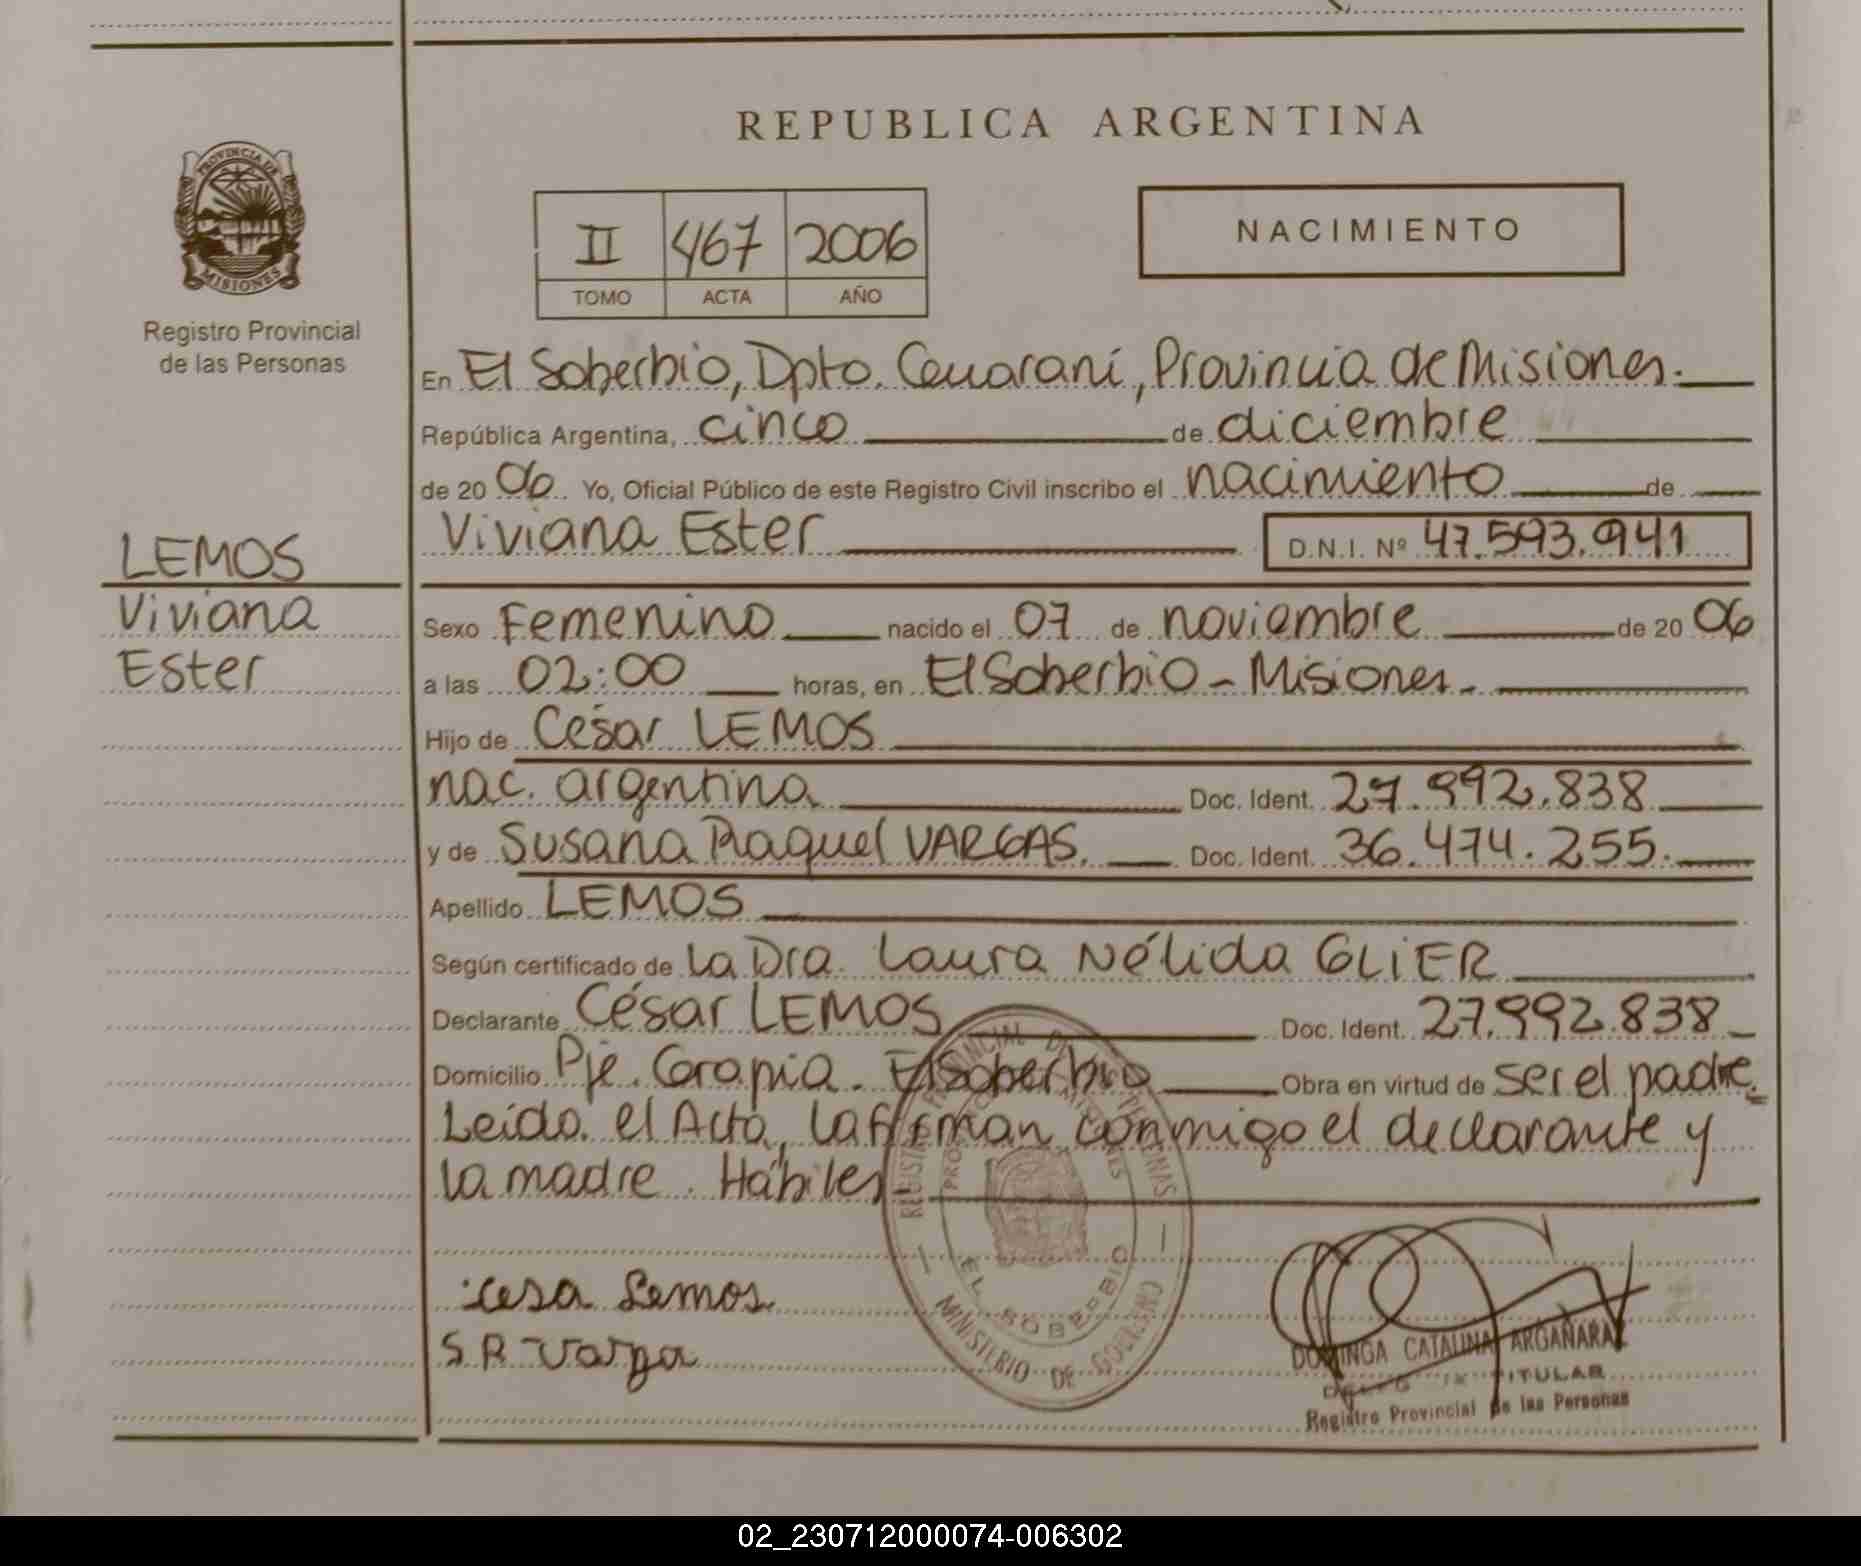 REPUBLICA ARGENTINA
PROVINCIA DE
MISIONES
Registro Provincial
de las Personas
II 467 2006
TOMO ACTA AÑO
NACIMIENTO
En El Soberbio, Dpto. Guaraní, Provincia de Misiones.
República Argentina, cinco de diciembre
de 2006 Yo, Oficial Público de este Registro Civil inscribo el nacimiento de
Viviana Ester D.N.I. Nº 47.593.941
LEMOS
Viviana
Ester
Sexo Femenino nacido el 07 de noviembre de 2006
a las 02:00 horas, en El Soberbio - Misiones.
Hijo de César LEMOS
nac. argentina Doc. Ident. 27.992.838
y de Susana Raquel VARGAS. Doc. Ident. 36.474.255.
Apellido LEMOS
Según certificado de La Dra. Laura Nélida GLIER
Declarante César LEMOS Doc. Ident. 27.992.838
Domicilio Pje. Grapia. El Soberbio Obra en virtud de ser el padre.
Leído el Acta, la firman conmigo el declarante y
la madre. Hábiles
REGISTRO PROVINCIAL DE LAS PERSONAS
EL SOBERBIO
MINISTERIO DE GOBIERNO
cesa Lemos
S R Varga
DOMINGA CATALINA ARGAÑARAZ
TITULAR
Registro Provincial de las Personas
02_230712000074-006302